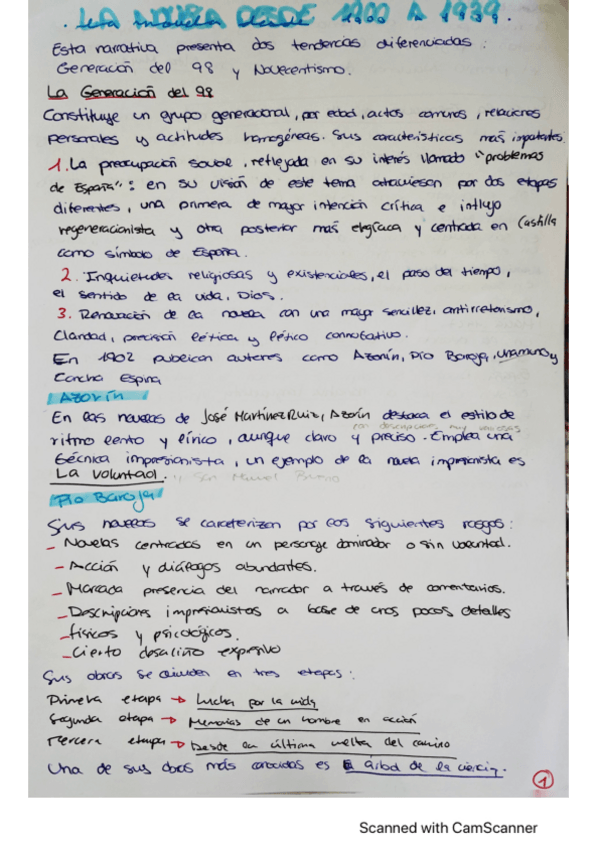 LA NOVELA DESDE 1900 A 1939.
Esta narrativa presenta dos tendencias diferenciadas:
Generación del 98 y Novecentismo.
La Generación del 98
Constituye un grupo generacional, por edad, actos comunes, relaciones
personales y actitudes homogéneas. Sus características más importantes
1. La preocupación social, reflejada en su interés llamado "problemas
de España": en su visión de este tema atraviesan por dos etapas
diferentes, una primera de mayor intención crítica e influjo
regeneracionista y otra posterior más y centrada en Castilla
como símbolo de España.
2. Inquietudes religiosas y existenciales, el paso del tiempo,
el sentido de la vida, Dios.
3. Renovación de la novela con una mayor sencillez, antirretorismo,
Claridad, precisión léxica y léxico connotativo.
En 1902 publican autores como Azorín, Pío Baroja, Unamuno y
Concha Espina
AZORÍN
En las novelas de José Martínez Ruiz, Azorín destaca el estilo de
con descripciones muy
ritmo lento y lírico, aunque claro y preciso. Emplea una
técnica impresionista, un ejemplo de la novela impresionista es
La voluntad. San Manuel Bueno
Pío Baroja
Sus novelas se caracterizan por los siguientes rasgos:
- Novelas centradas en un personaje dominador o sin voluntad.
- Acción y diálogos abundantes.
- Marcada presencia del narrador a través de comentarios.
- Descripciones impresionistas a base de unos pocos detalles
- físicos y psicológicos.
- Cierto desaliño expresivo
Sus obras se dividen en tres etapas:
Primera etapa → Lucha por la vida
Segunda etapa → Memorias de un hombre en acción
Tercera etapa → Desde la última vuelta del camino
Una de sus obras más conocidas es El árbol de la ciencia.
1
Scanned with CamScanner